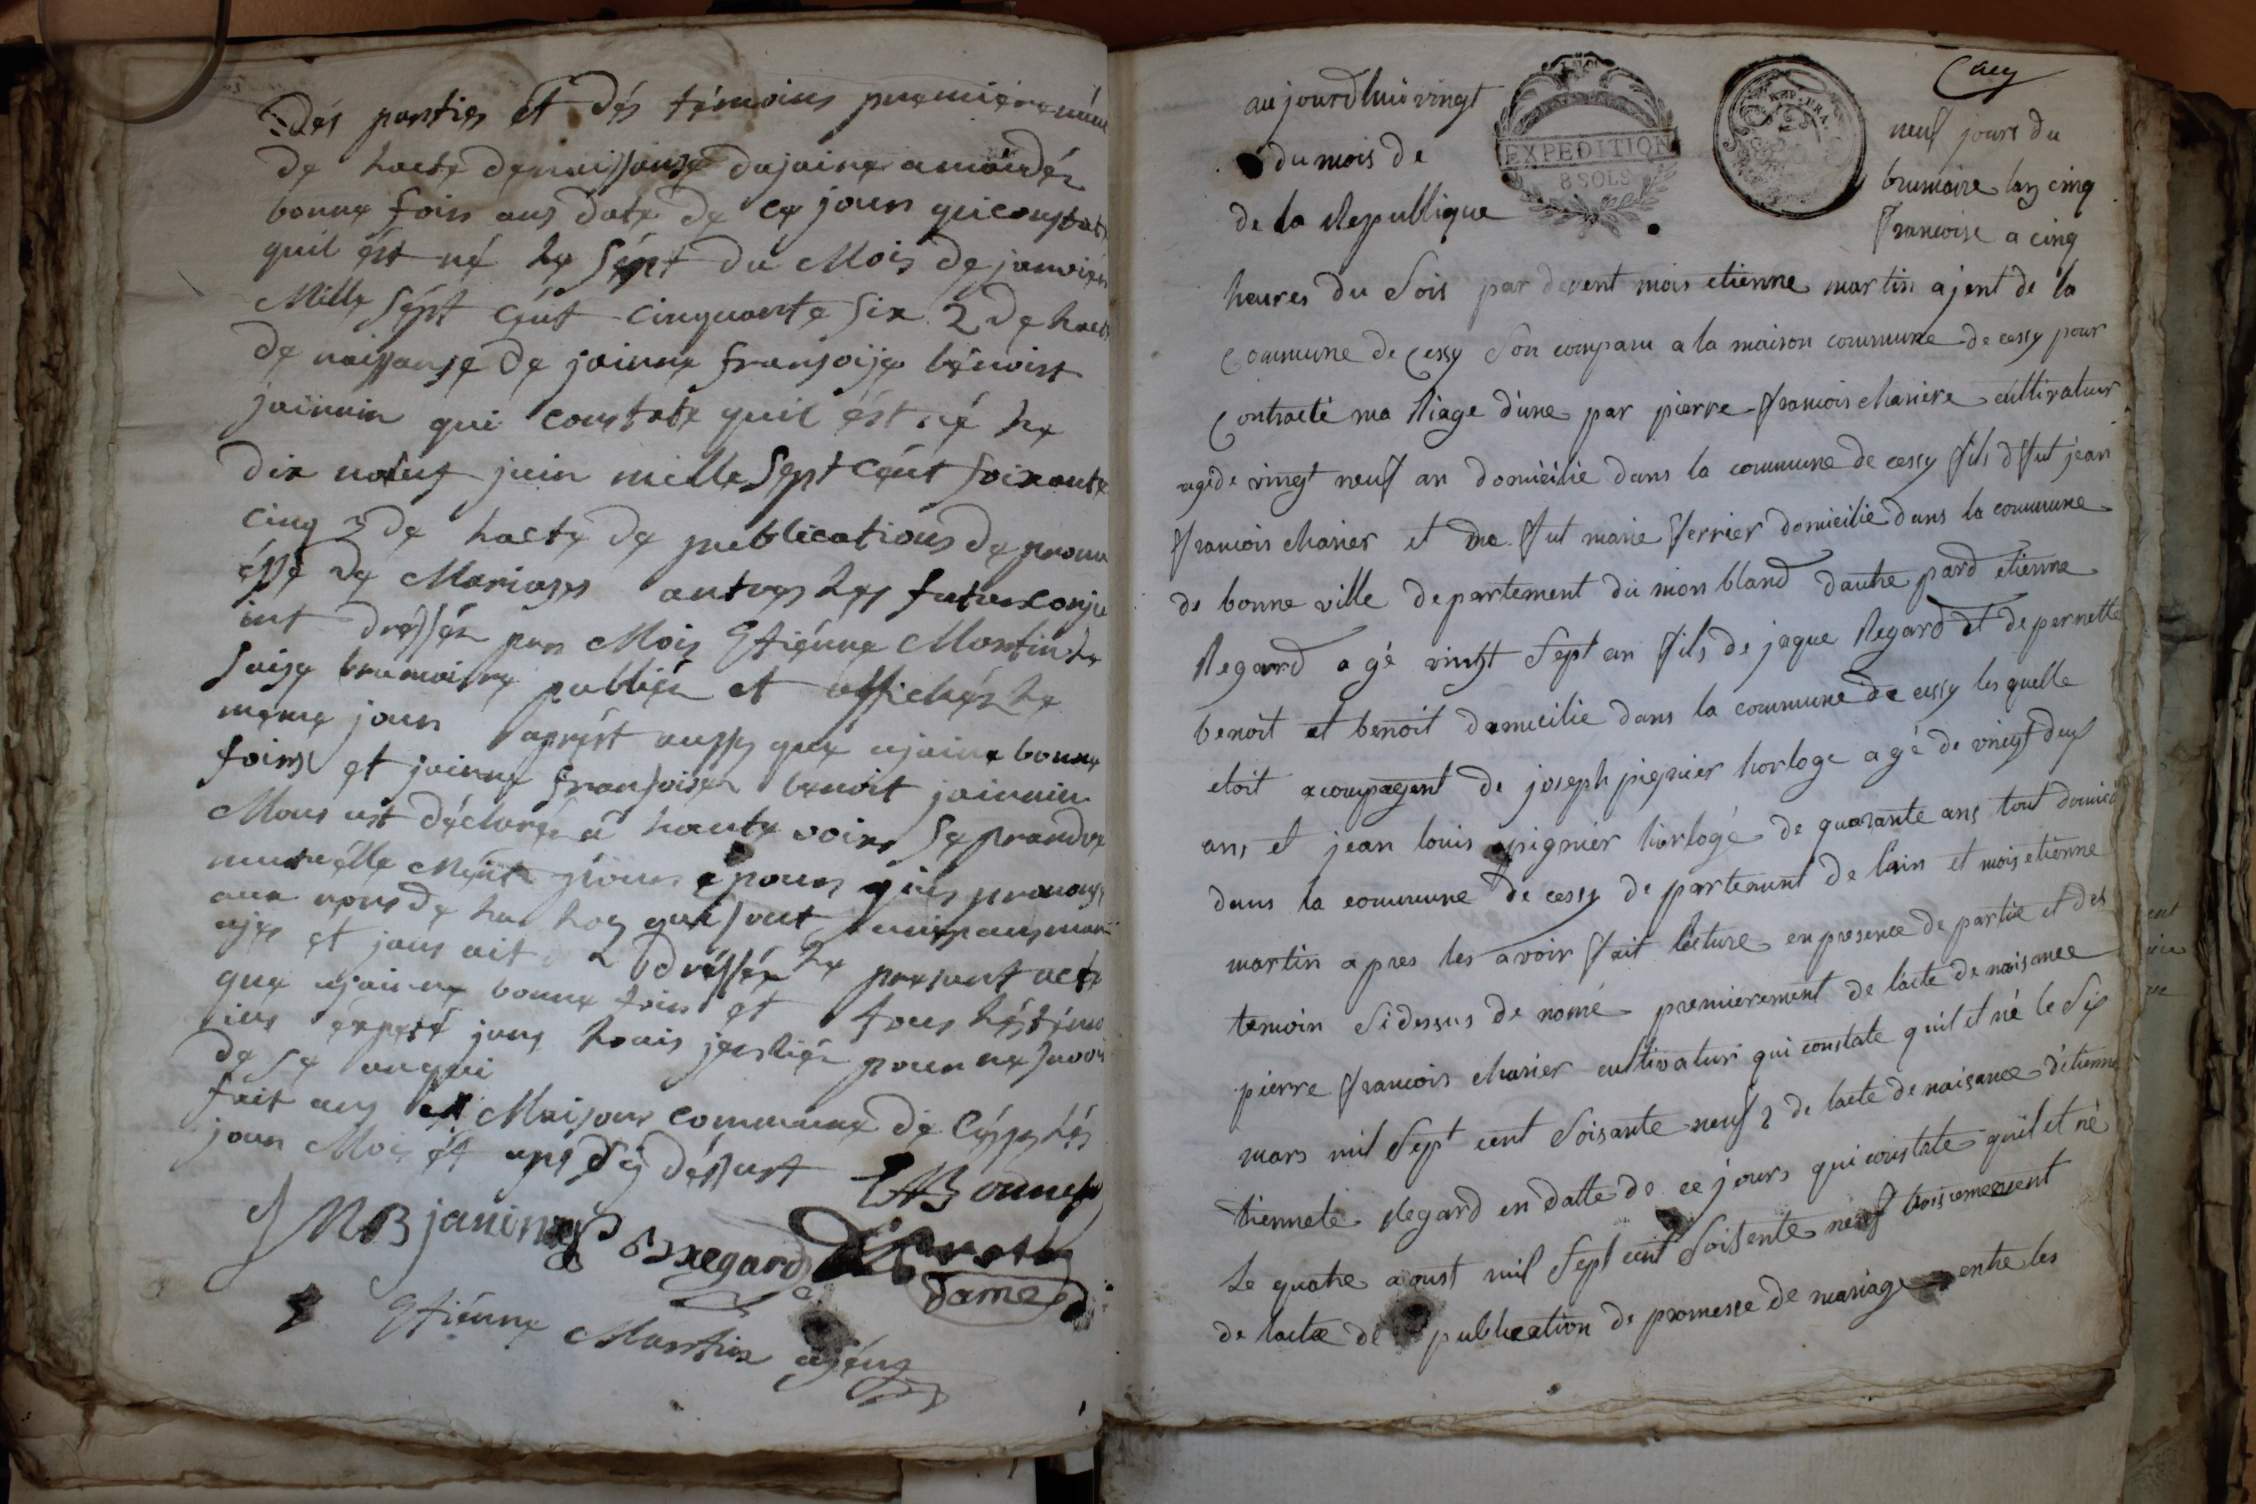 des parties et des témoins premièremént
de hacte denaissanse dajaine amoidéz
bonne foin aus date de ce jour qui constate
quil ést né le sépt du Mois de janviér
Mille sépt cént cinquante six 2 de hacte
de naissanse de jainne fransoise benoist
jainnin qui constate quil ést né le
dix nœuf juin mille sept cént soixante
cinq 3 de hacte de publications de prom
ésse de Mariages antres les futurs conju
int dréssér par Mois Etiénne Martin le
saise brumaire publiér et affichér le
meme jour aprést aussy que ajaine bonne
foins et jainne fransoise benoit jainnin
Mons ust déclaré a haute voix se prandre
mutuélle Mént pour epoux jais prononse
aux nons de la loy quil sont unis aus mari
ajes et jans ait dréssér le presant acte
que ajaine bonne foin et tous lés témo
ins éxpété jans
de se anquéri pour ne savoir
fait aus Maisons commune de Céssy lés
jour Mois ét ans dej déssust
MB janin regard
Dame
Etiénne Martin ajént
Cacy
aujourdhuis vingt neuf jours du
du mois de brumaire lan cinq
de la Republique francoise a cinq
EXPEDITION
8 SOLS
REP. FRA.
heures du Sois par devent mois etienne martin ajent de la
commune de Cessy Son comparu a la maison commune de cessy pour
Contracté ma Riage d'une par pierre francois chariere cultivateur
agé de vingt neuf an domicilie dans la commune de cessy fils d fut jean
francois charier et de fut marie ferrier domicilie dans la commune
de bonne ville departement du mon bland d'autre pard etienne
Regard a gé vingt Sept an fils de jaque Regard et de pernette
benoit et benoit domicilie dans la commune de cessy les quelle
etoit acompagent de joseph pignier horloge a gé de vingt deux
ans et jean louis pignier horlogé de quarante ans tout domici
dans la commune de cessy de partement de l'ain et mois etienne
martin apres les avoir fait lecture en presence de partie et des
temoin Si dessus de nomé premierement de l'acte de naisance
pierre francois charier cultivateur qui constate quil et né le Six
mars mil Sept cent Soisante neuf 2 de lacte de naisance d'etienne
tiennete Regard en datte de ce jours qui constate quil et né
Le quatre aoust mil Sept cent Soisente neuf troisiemement
de lacte de publication de promesse de mariage entre les